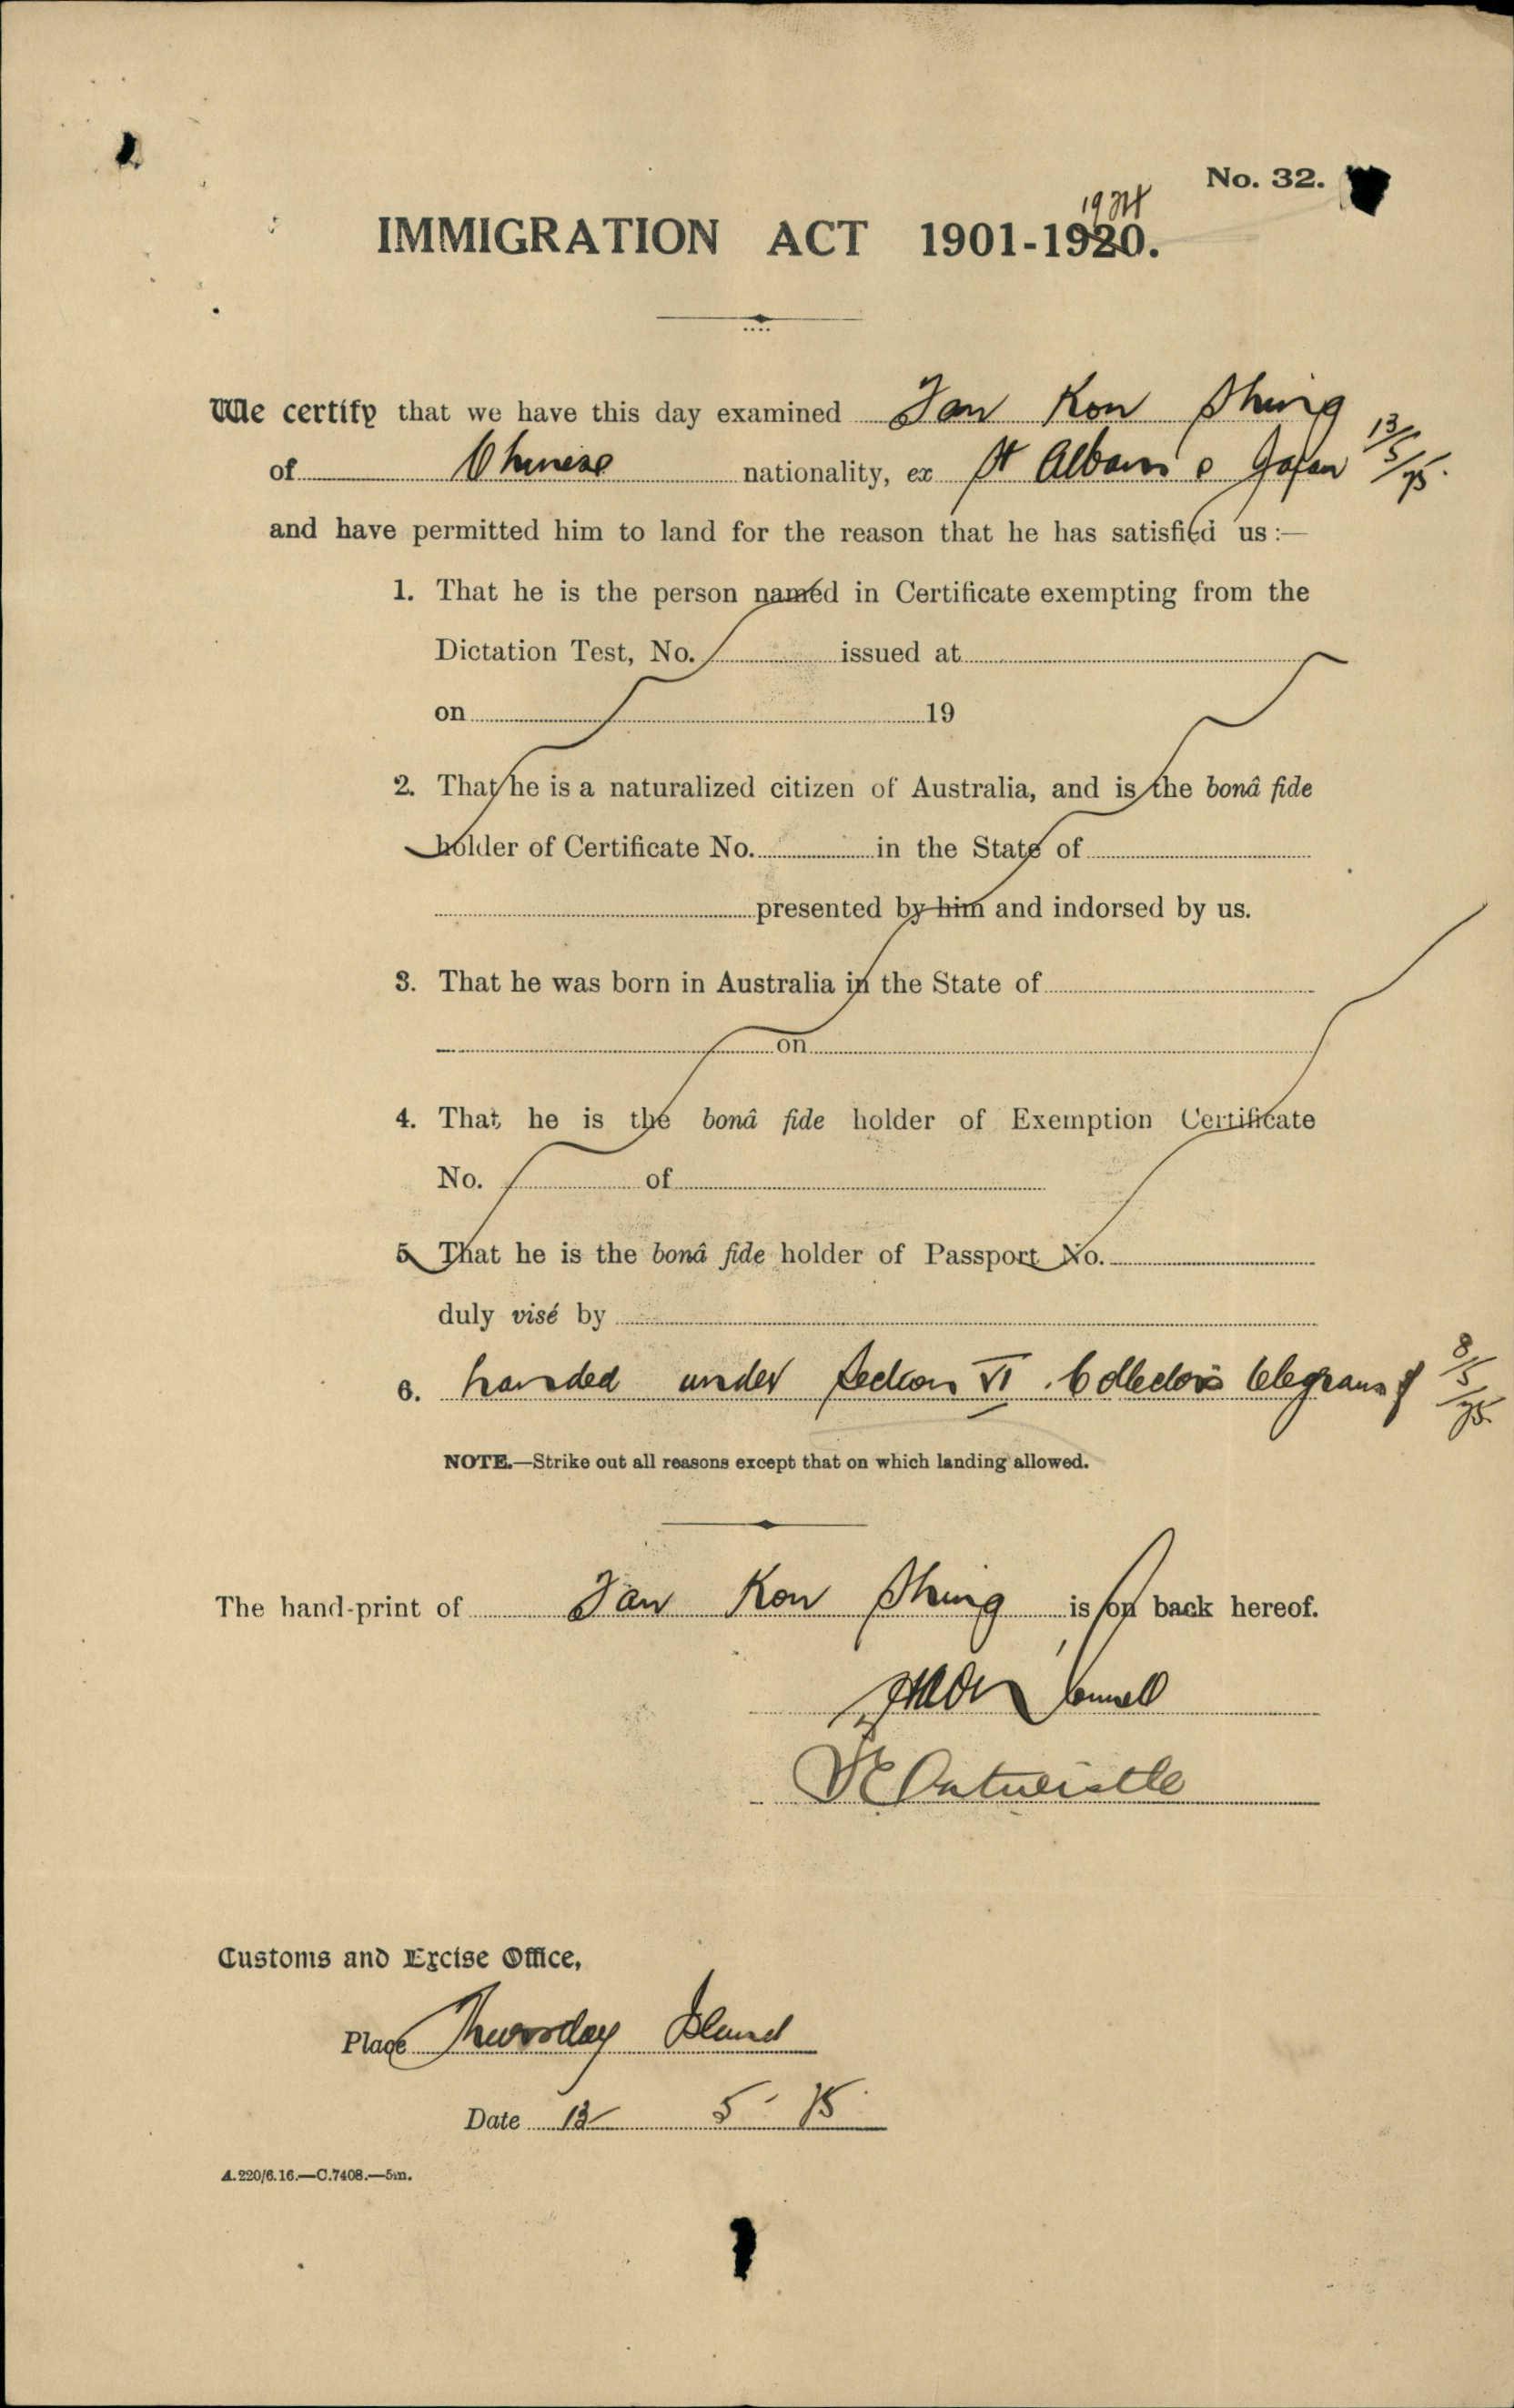 No. 32.
1924
IMMIGRATION ACT 1901-1920.
We certify that we have this day examined Jan Kon Shing
of Chinese nationality, ex St Albans Japan 13/5/25.
and have permitted him to land for the reason that he has satisfied us :—
1. That he is the person named in Certificate exempting from the
Dictation Test, No. issued at
on 19
2. That he is a naturalized citizen of Australia, and is the bonâ fide
holder of Certificate No. in the State of
presented by him and indorsed by us.
3. That he was born in Australia in the State of
on
4. That he is the bonâ fide holder of Exemption Certificate
No. of
5. That he is the bonâ fide holder of Passport No.
duly visé by
6. Landed under Section VI. Collector's telegram of 8/5/25.
NOTE.—Strike out all reasons except that on which landing allowed.
The hand-print of Jan Kon Shing is on back hereof.
Customs and Excise Office,
Place Thursday Island
Date 13 5 25
A.220/6.16.—C.7408.—5m.